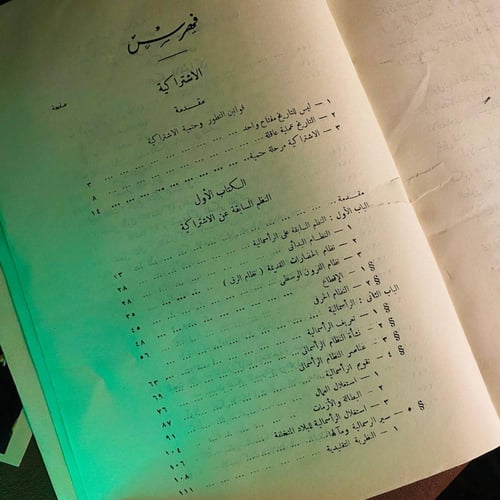 فهرس
الاشتراكية
صفحة
مقدمة
قوانين التطور وحتمية الاشتراكية
١ — ليس للتاريخ مفتاح واحد ... ٣
٢ — التاريخ عملية عاقلة ... ٨
٣ — الاشتراكية مرحلة حتمية ... ١٤
الكتاب الأول
النظم السابقة عن الاشتراكية
مقدمة ... ٢٣
الباب الأول : النظم السابقة على الرأسمالية ... ٢٨
١ — النظام البدائى ... ٢٨
٢ — نظام الحضارات القديمة ( نظام الرق ) ... ٣٥
٣ — نظام القرون الوسطى ... ٤٥
§ ١ — الإقطاع ... ٤٥
§ ٢ — النظام الحرفى ... ٤٨
الباب الثانى : الرأسمالية ... ٥٦
§ ١ — تعريف الرأسمالية
§ ٢ — نشأة النظام الرأسمالى ... ٦٣
§ ٣ — عناصر النظام الرأسمالى ... ٦٩
§ ٤ — تقويم الرأسمالية ... ٧٦
١ — استغلال العمال ... ٨٧
٢ — البطالة والأزمات ... ٩١
٣ — استغلال الرأسمالية للبلاد المتخلفة ... ١٠٤
§ ٥ — سير الرسمالية ومآلها ... ١٠٦
١ — النظرية التقليدية ... ١٠٨
١١١